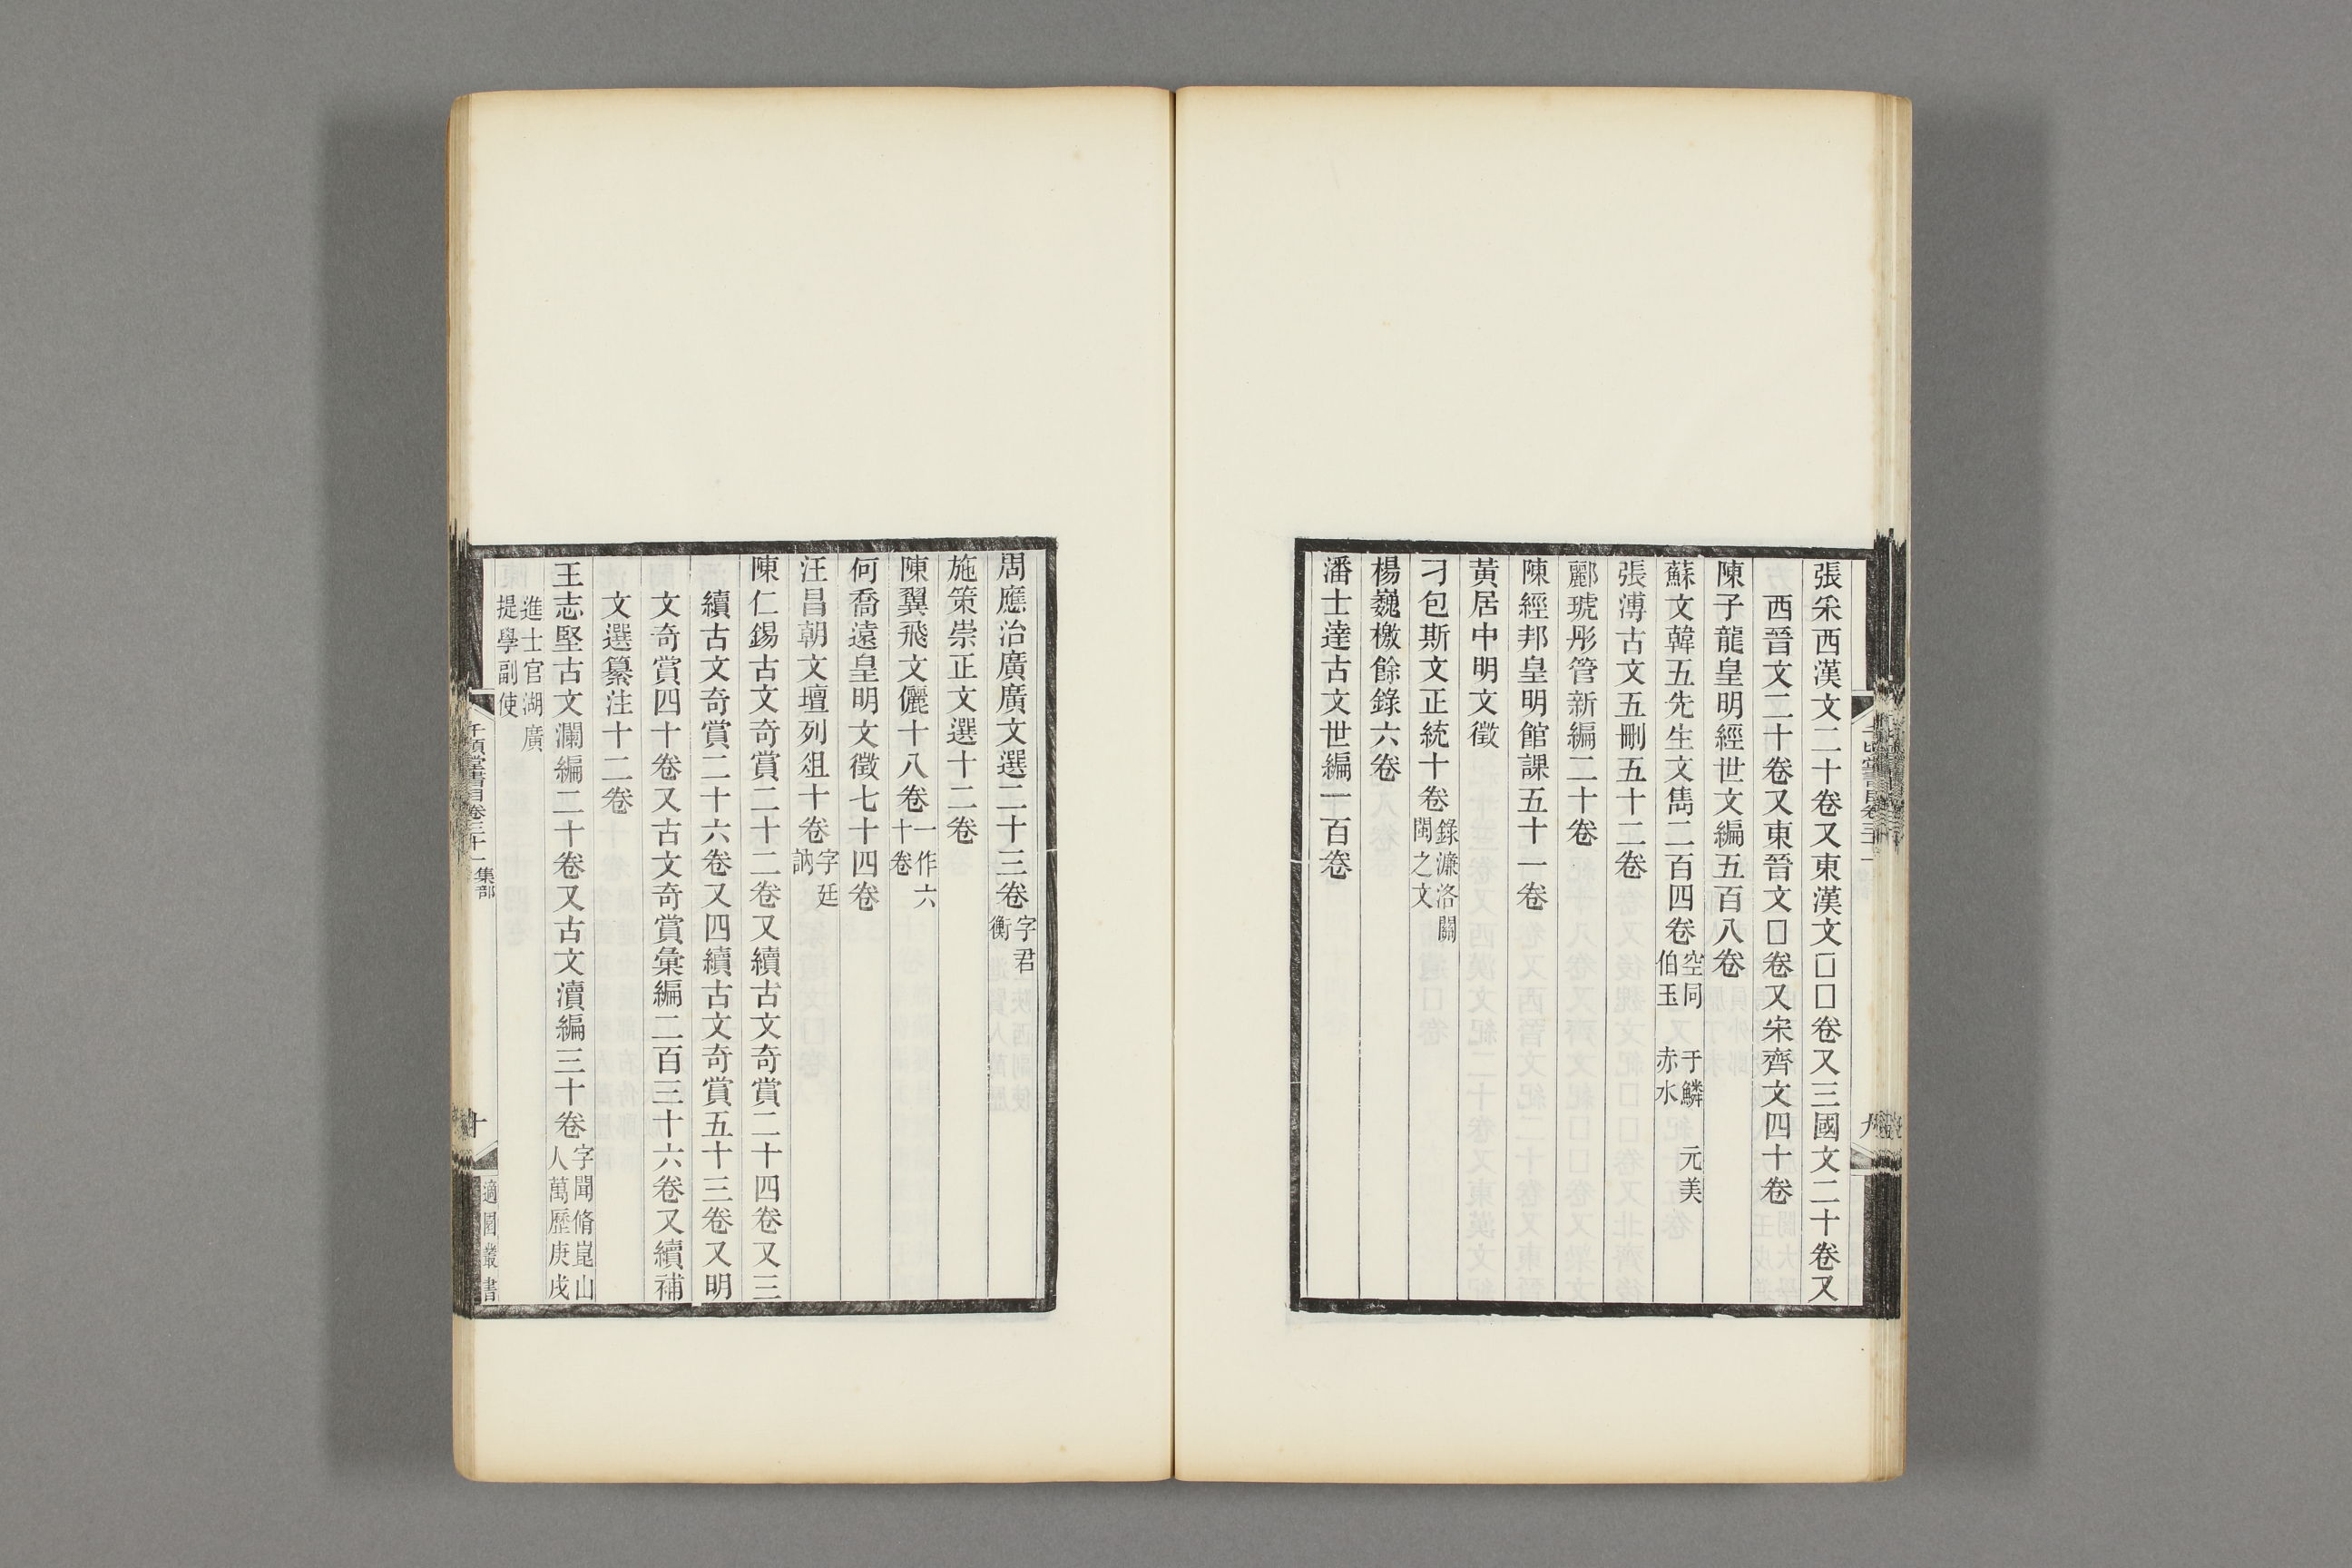 張采西漢文二十卷又東漢文□□卷又三國文二十卷又
西晉文二十卷又東晉文□卷又宋齊文四十卷
陳子龍皇明經世文編五百八卷
蘇文韓五先生文雋二百四卷空同 于鱗 元美
伯玉 赤水
張溥古文五刪五十二卷
酈琥彤管新編二十卷
陳經邦皇明館課五十一卷
黃居中明文徵
刁包斯文正統十卷錄濂洛關
閩之文
楊巍檄餘錄六卷
潘士達古文世編一百卷
周應治廣廣文選二十三卷字君
衡
施策崇正文選十二卷
陳翼飛文儷十八卷一作六
十卷
何喬遠皇明文徵七十四卷
汪昌朝文壇列俎十卷字廷
訥
陳仁錫古文奇賞二十二卷又續古文奇賞二十四卷又三
續古文奇賞二十六卷又四續古文奇賞五十三卷又明
文奇賞四十卷又古文奇賞彙編二百三十六卷又續補
文選纂注十二卷
王志堅古文瀾編二十卷又古文瀆編三十卷字聞脩崑山
人萬歷庚戌
進士官湖廣
提學副使
千頃堂書目卷三十一 集部
十
適園叢書